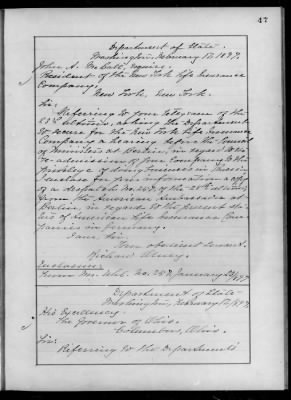 47
Department of State.
Washington, February 12, 1897.
John A. McCall, Esquire,
President of the New York Life Insurance
Company,
New York, New York.
Sir:
Referring to your telegram of the
asking the Department
to secure for the New York Life Insurance
Company a hearing before the
of Ministers at Berlin, in regard to the
re-admission of your Company to the
privilege of doing business in
I enclose for your information a copy
of a despatch No. of the 28th ultimo,
from the American Ambassador at
Berlin, in regard to the present
status of American life insurance Com-
panies in Germany.
I am, Sir,
Your obedient servant,
Richard Olney.
Enclosure:
From Mr. Uhl, No. January 28, 1897.
Department of State.
Washington, February 12, 1897.
His Excellency
The Governor of Ohio,
Columbus, Ohio.
Sir:
Referring to the Department's